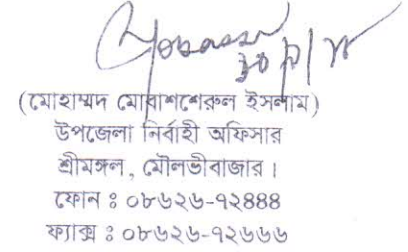 (মোহাম্মদ মোবাশশেরুল ইসলাম)
উপজেলা নির্বাহী অফিসার
শ্রীমঙ্গল, মৌলভীবাজার।
ফোন ঃ ০৮৬২৬-৭২৪৪৪
ফ্যাক্স ঃ ০৮৬২৬-৭২৬৬৬